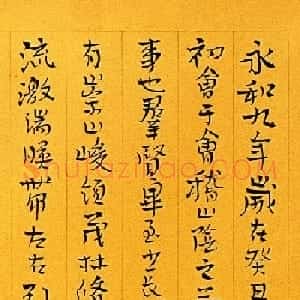 永和九年歲在癸丑
初會于會稽山陰之
事也羣賢畢至少長
有崇山峻領茂林脩
流激湍暎帶左右